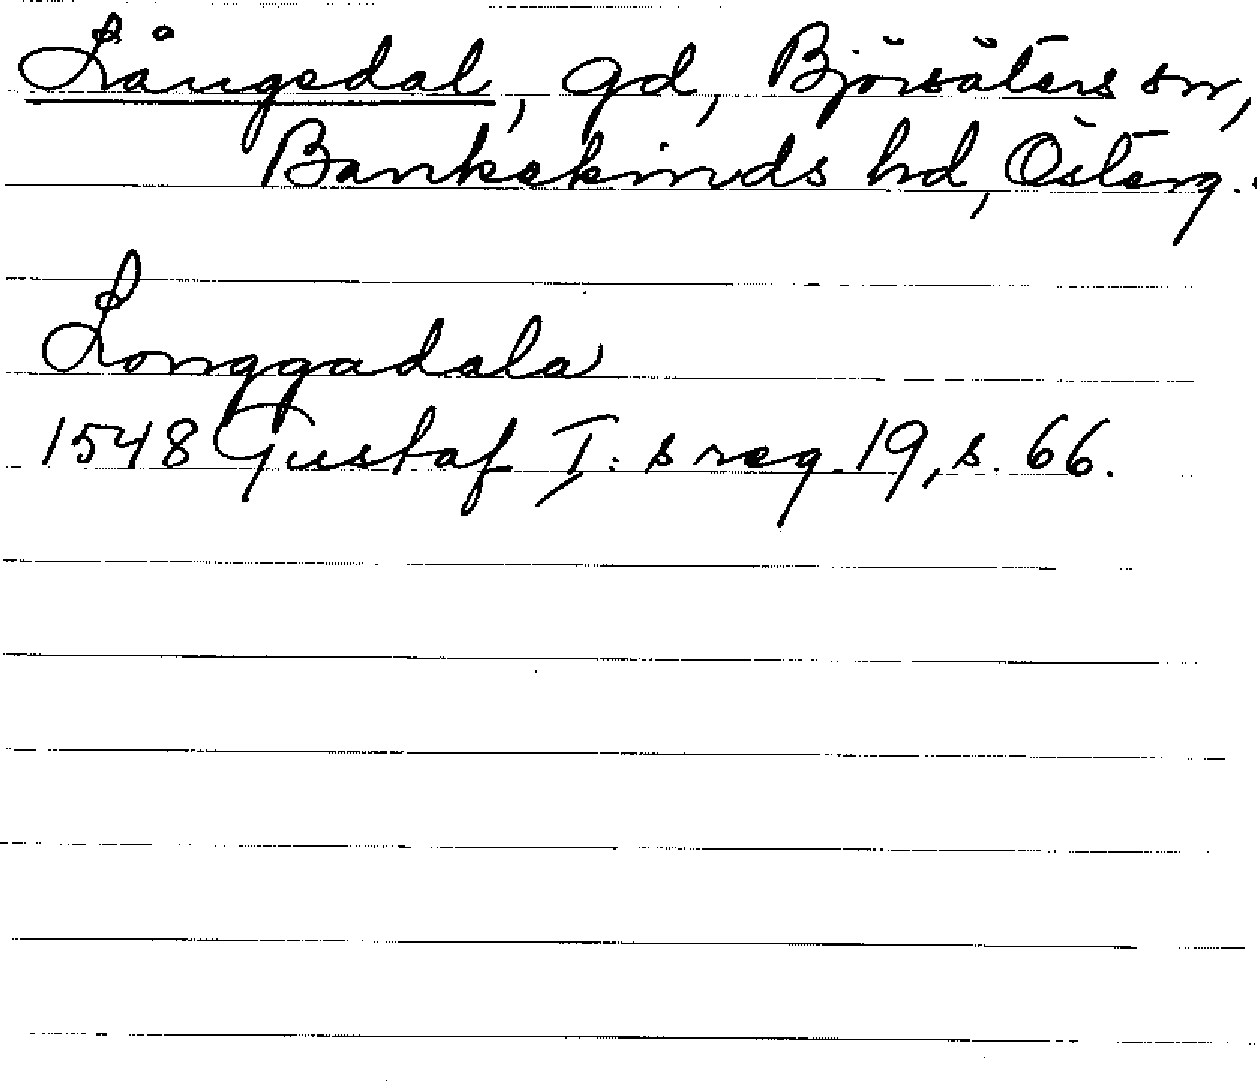 Långsdal, gd, Björsäters sn,
Bankekinds hd, Österg.
Longgadala
1548 Gustaf I:s reg. 19, s. 66.